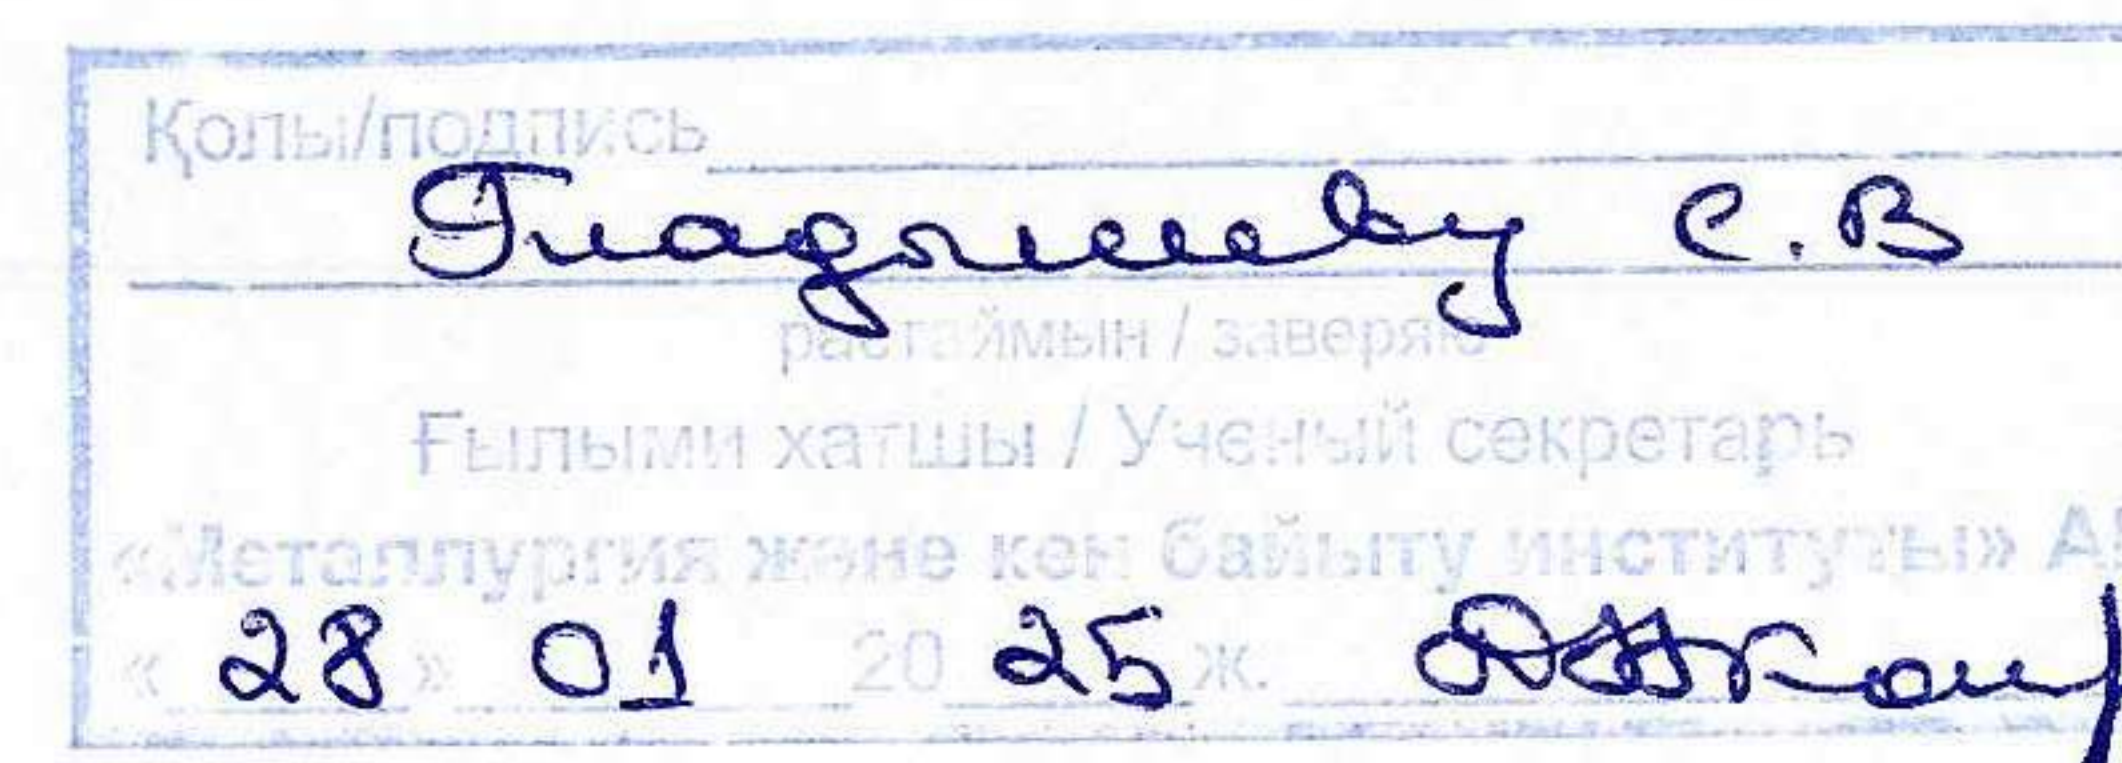 Қолы/подпись
Гладышеву С.В
растаймын / заверяю
Ғылыми хатшы / Ученый секретарь
«Металлургия және кен байыту институты» А
« 28 » 01 20 25 ж.